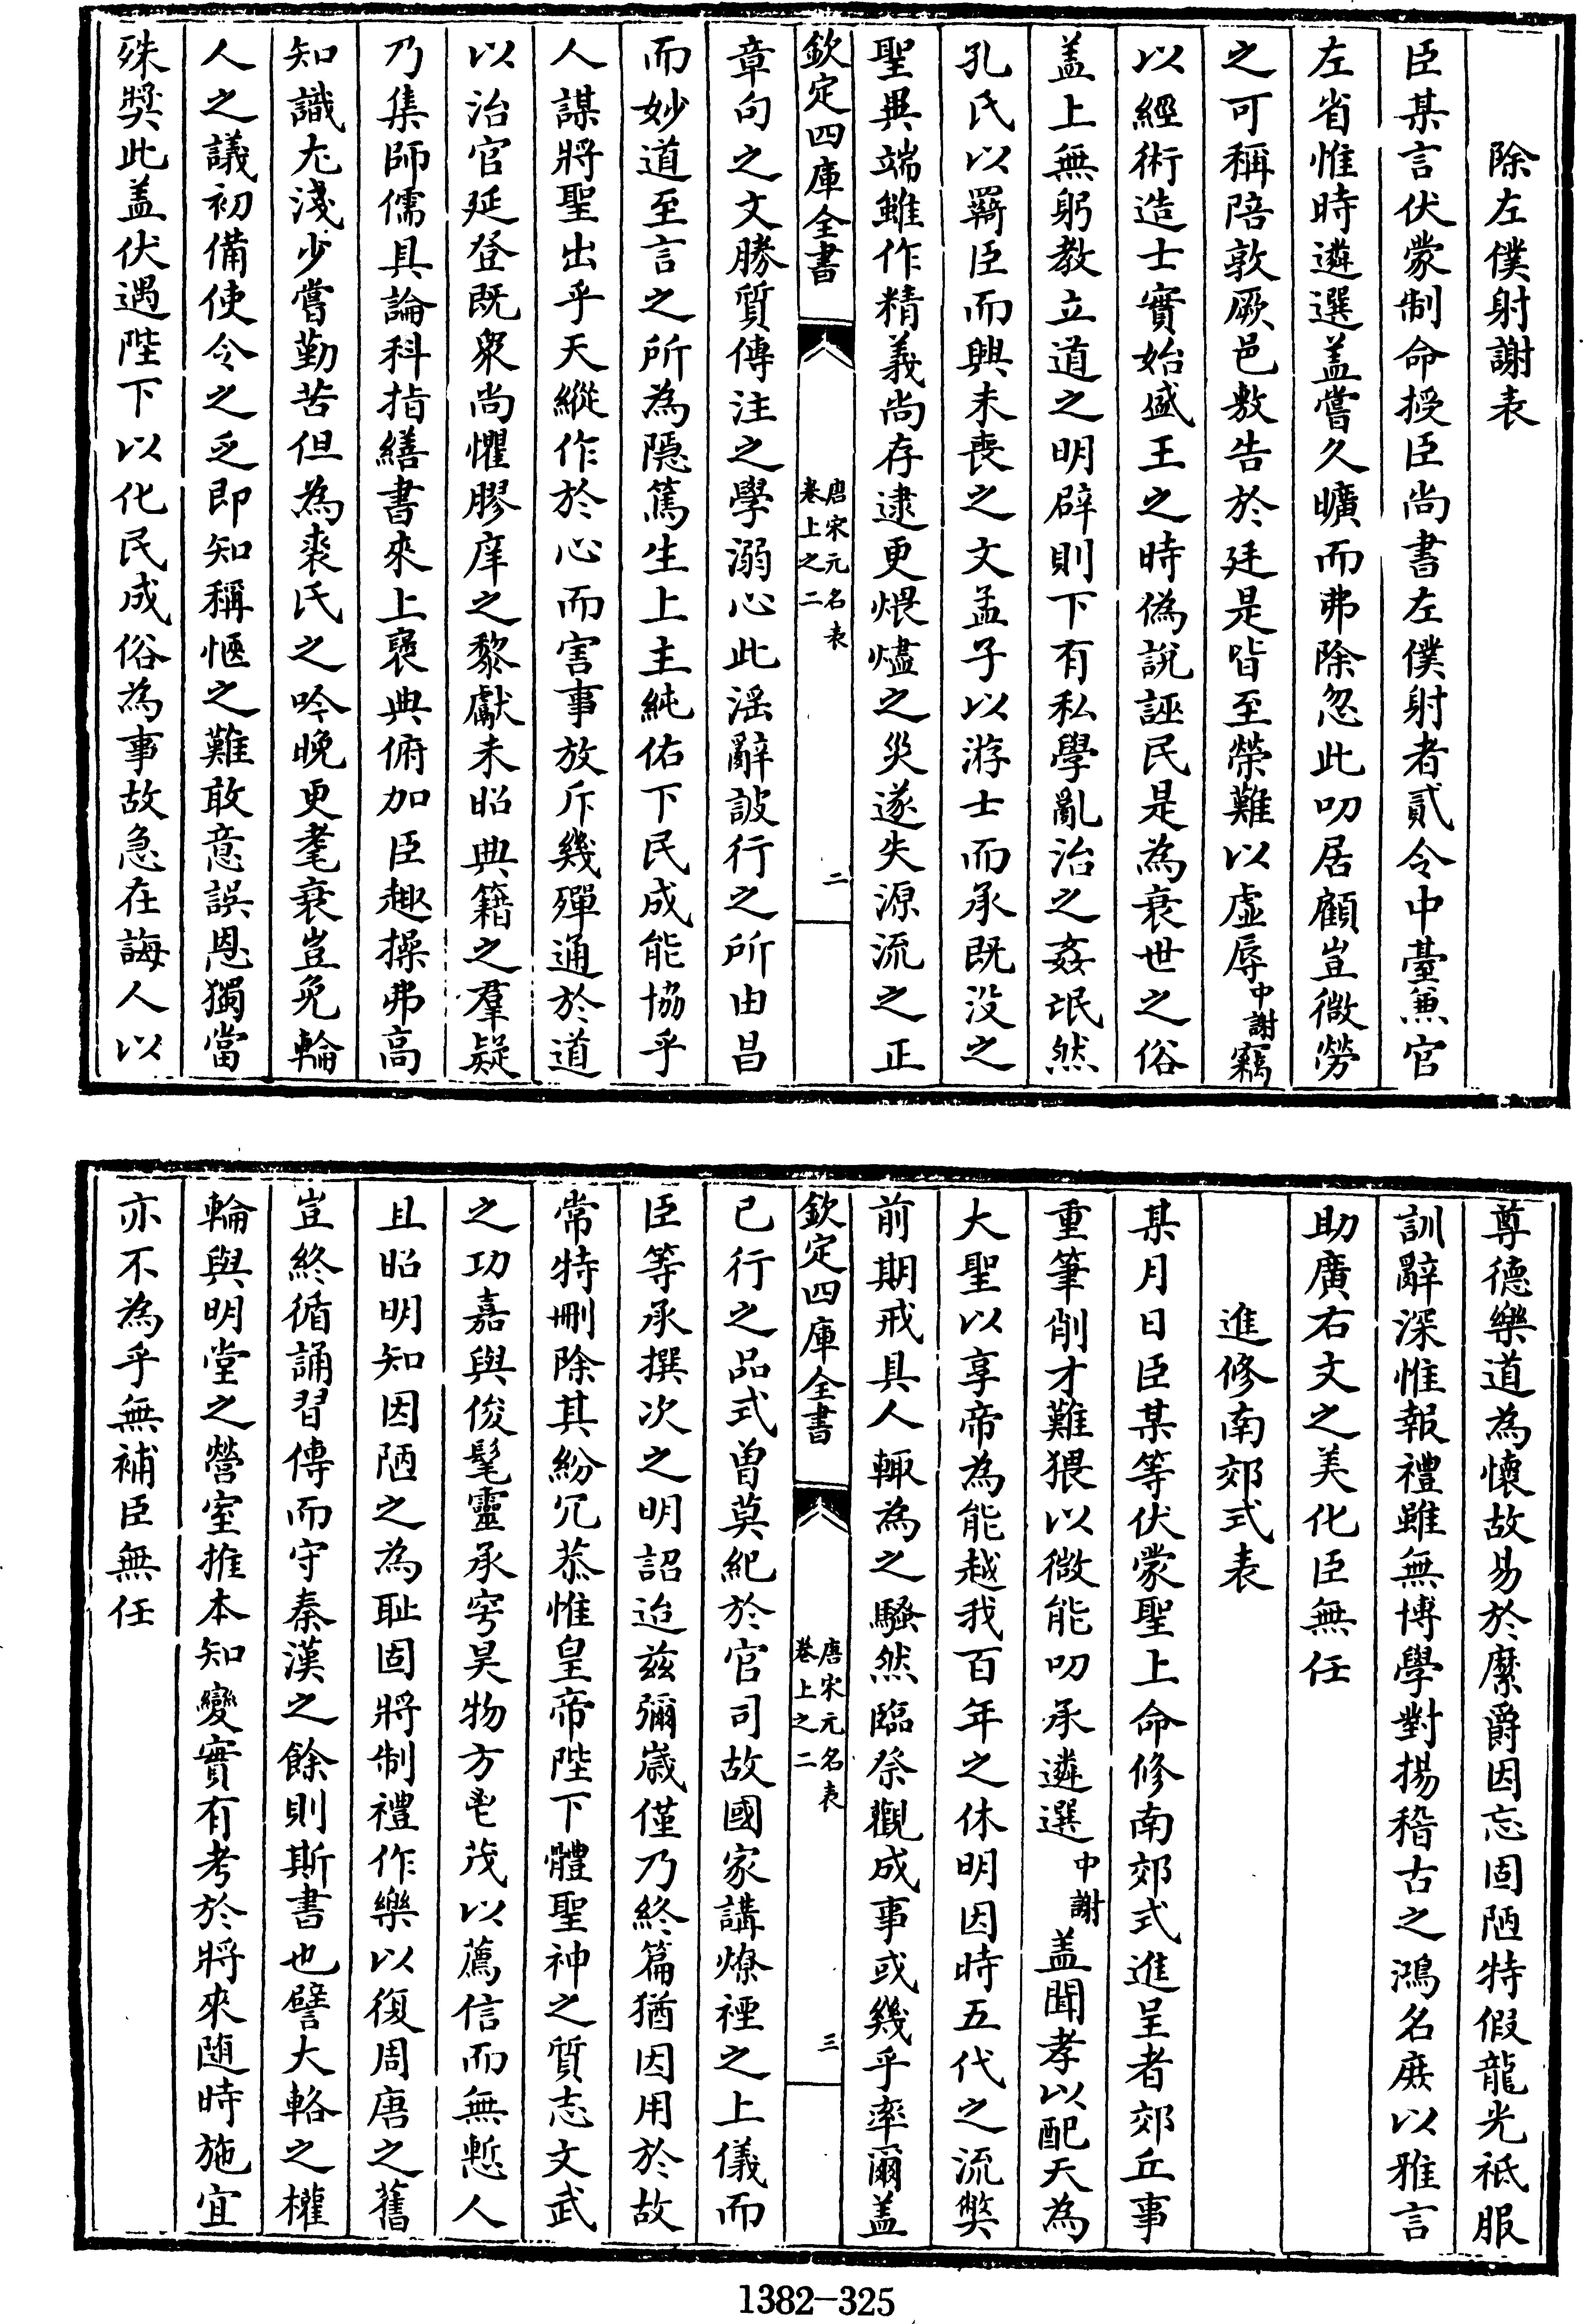 除左僕射謝表
臣某言伏蒙制命授臣尚書左僕射者貳令中臺兼官
左省惟時遴選盖嘗久曠而弗除忽此叨居顧豈微勞
之可稱陪敦厥邑敷告於廷是皆至榮難以虛辱中謝竊
以經術造士實始盛王之時偽說誣民是為衰世之俗
盖上無躬教立道之明辟則下有私學亂治之姦氓然
孔氏以羇臣而興未喪之文孟子以游士而承既没之
聖異端雖作精義尚存逮更煨燼之災遂失源流之正
欽定四庫全書 唐宋元名表 卷上之二 二
章句之文勝質傳注之學溺心此淫辭詖行之所由昌
而妙道至言之所為隱篤生上主純佑下民成能協乎
人謀將聖出乎天縱作於心而害事放斥幾殫通於道
以治官延登既衆尚懼膠庠之黎獻未昭典籍之羣疑
乃集師儒具論科指繕書來上襃典俯加臣趣操弗高
知識尤淺少嘗勤苦但為裘氏之吟晚更耄衰豈免輪
人之議初備使令之乏即知稱愜之難敢意誤恩獨當
殊奬此盖伏遇陛下以化民成俗為事故急在誨人以
尊德樂道為懷故易於縻爵因忘固陋特假龍光祗服
訓辭深惟報禮雖無博學對揚稽古之鴻名庶以雅言
助廣右文之美化臣無任
進修南郊式表
某月日臣某等伏蒙聖上命修南郊式進呈者郊丘事
重筆削才難猥以微能叨承遴選中謝盖聞孝以配天為
大聖以享帝為能越我百年之休明因時五代之流弊
前期戒具人輒為之騷然臨祭觀成事或幾乎率爾盖
欽定四庫全書 唐宋元名表 卷上之二 三
已行之品式曾莫紀於官司故國家講燎禋之上儀而
臣等承撰次之明詔迨兹彌歲僅乃終篇猶因用於故
常特刪除其紛冗恭惟皇帝陛下體聖神之質志文武
之功嘉與俊髦靈承穹昊物方皀茂以薦信而無慙人
且昭明知因陋之為恥固將制禮作樂以復周唐之舊
豈終循誦習傳而守秦漢之餘則斯書也譬大輅之椎
輪與明堂之營室推本知變實有考於將來隨時施宜
亦不為乎無補臣無任
1382-325